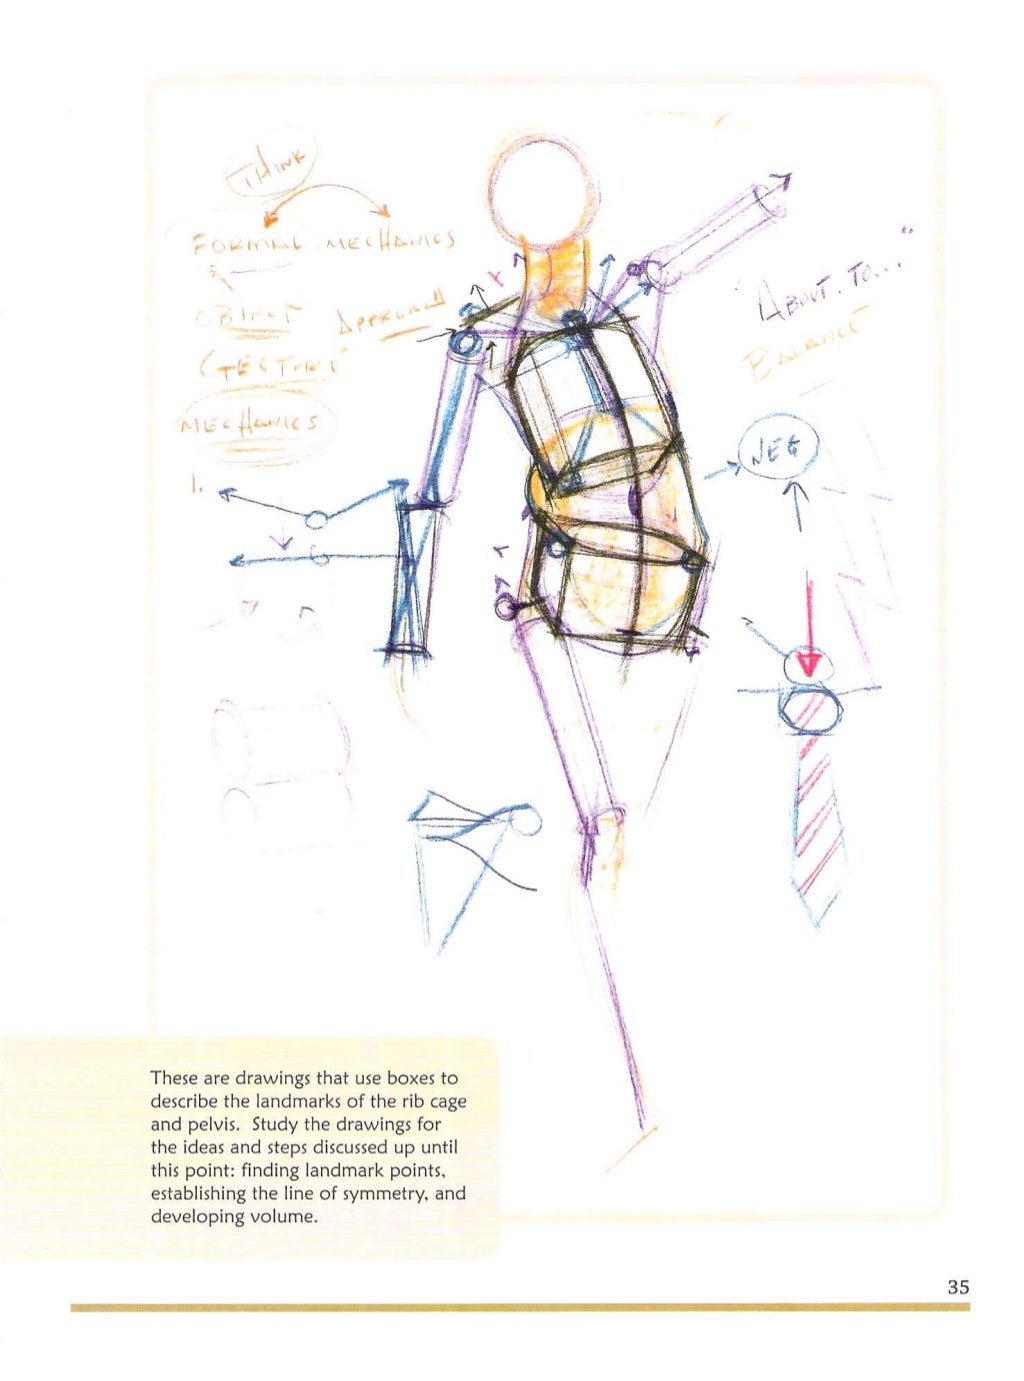 THINK
FORMAL MECHANICS
&
OBJECT APPROACH
GESTURE
MECHANICS
1.
"ABOUT. TO..."
BALANCE
NEG
These are drawings that use boxes to
describe the landmarks of the rib cage
and pelvis. Study the drawings for
the ideas and steps discussed up until
this point: finding landmark points,
establishing the line of symmetry, and
developing volume.
35